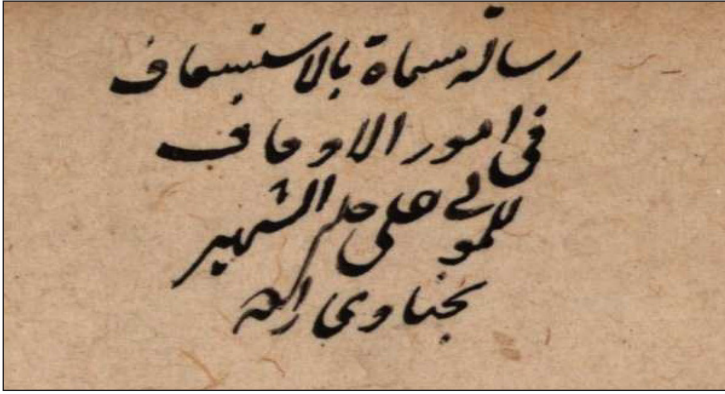 رسالة مسماة بالاستسعاف
فى امور الاوقاف
للمولى على حلبى الشهير
بحناوى زاده